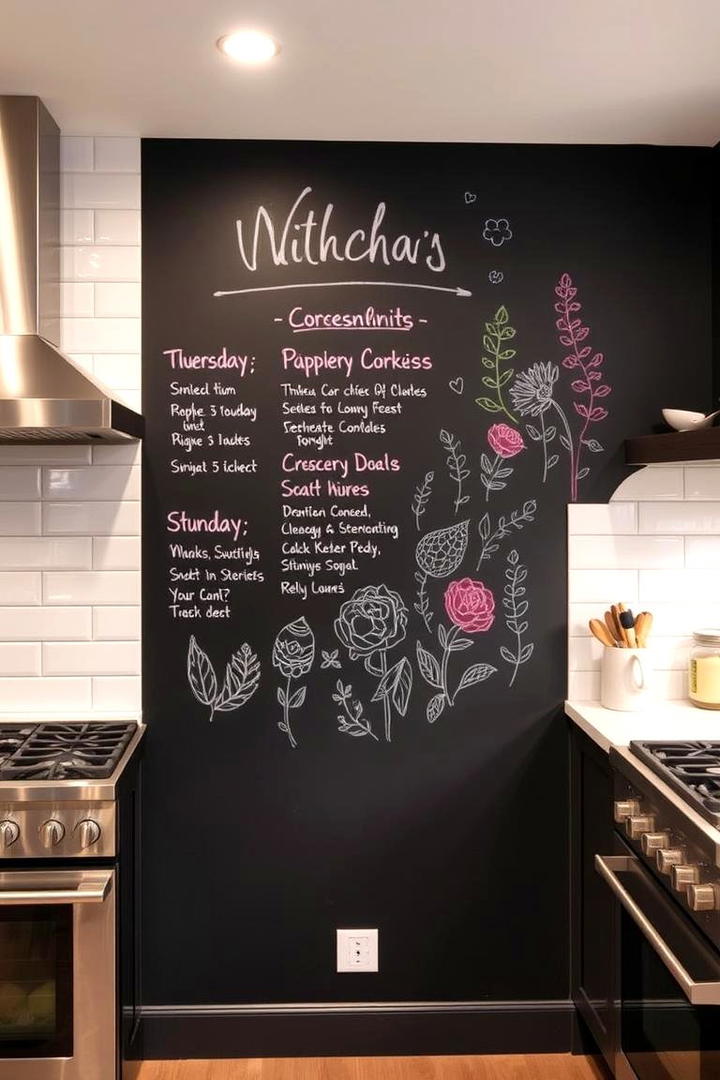 Withcha's
- Corcesnlinits -
Tluersday;
Smlect tium
Rople 3 Touday
Rigne s lautes
Smjat 5 icleect
Stunday;
Mluaks, Swutlfs
Sndt in Stericts
Your Canl?
Track dect
Papplery Corkess
Thteu Car chies Of Clotes
Seles fo Lowy Feest
Fectherate Conldes
Fonght
Crescery Doals
Scatt Hures
Dontian Conced,
Cleaogy & Sterconting
Calck Keter Pedy,
Stiniys Sogal
Relly Lownes